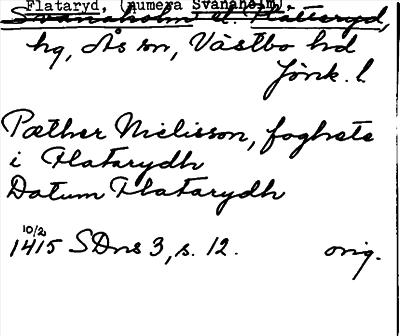 Flataryd, (numera Svanaholm).
Svanaholm el. Flatteryd,
hg, Ås sn, Västbo hd
Jönk. l.
Pæther Nielisson, foghete
i Flatarydh
Datum Flatarydh
10/2
1415 SDns 3, s. 12. orig.